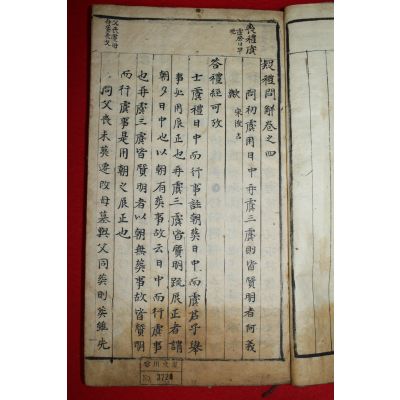 喪禮虞
疑禮問解卷之四
問初虞用日中再虞三虞則皆質明者何義
歟 宋浚吉
答禮經可攷
士虞禮日中而行事註朝葬日中而虞君子擧
事必用辰正也再虞三虞皆質明疏辰正者謂
朝夕日中也以朝有葬事故云日中而行虞事
也再虞三虞皆質明者以朝無葬事故皆質明
而行虞事是用朝之辰正也
問父喪未葬遷改母墓與父同葬則葬雖先